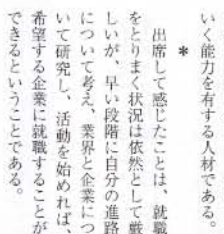 いく能力を有する人材である。
＊
出席して感じたことは、就職
をとりまく状況は依然として厳
しいが、早い段階に自分の進路
について考え、業界と企業につ
いて研究し、活動を始めれば、
希望する企業に就職することが
できるということである。